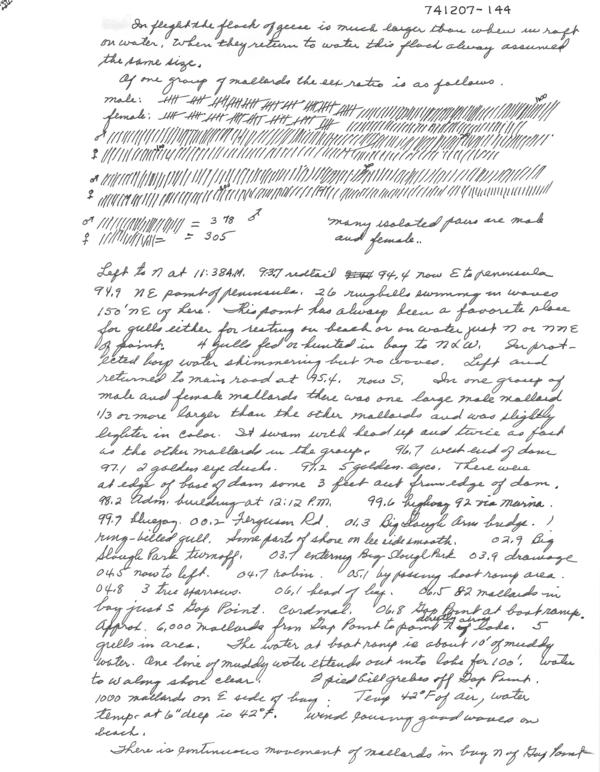 741207-144
In flight the flock of geese is much larger than when in raft
on water. When they return to water this flock always assumed
the same size.
Of one group of mallards the sex ratio is as follows.
male:
female:
♂
♀
♂
♀
♂ = 378 ♂
♀ = 305
many isolated pairs are male
and female..
Left to N at 11:38 A.M. 93.7 redtail 94.4 now E to peninsula
94.9 NE point of peninsula. 26 ringbills swimming in waves
150' NE of here. This point has always been a favorite place
for gulls either for resting on beach or on water just N or NNE
of point. 4 gulls fed or hunted in bay to N & W. In prot-
ected bay water shimmering but no waves. Left and
returned to main road at 95.4. now S. In one group of
male and female mallards there was one large male mallard
1/3 or more larger than the other mallards and was slightly
lighter in color. It swam with head up and twice as fast
as the other mallards in the group. 96.7 west end of dam
97.1 2 golden eye ducks. 97.2 5 golden eyes. There were
at edge of base of dam some 3 feet out from edge of dam.
98.2 Adm. building at 12:12 P.M. 99.6 highway 92 via Marina.
99.7 bluejay. 00.2 Ferguson Rd. 01.3 Big Slough Arm bridge. 1
ring-billed gull. Some parts of shore on lee side smooth. 02.9 Big
Slough Park turnoff. 03.7 entering Big Slough Park 03.9 drainage
04.5 now to left. 04.7 robin. 05.1 by passing boat ramp area.
04.8 3 tree sparrows. 06.1 head of bay. 06.5 82 mallards in
bay just S Gap Point. Cardinal. 06.8 Gap Point at boat ramp.
Approx. 6,000 mallards from Gap Point to point directly across N of lake. 5
gulls in area. The water at boat ramp is about 10' of muddy
water. One line of muddy water extends out into lake for 100'. water
to W along shore clear. 2 pied bill grebes off Gap Point.
1000 mallards on E side of bay. Temp 42°F of air, water
temp. at 6" deep is 42°F. wind causing good waves on
beach.
There is continuous movement of mallards in bay N of Gap Point